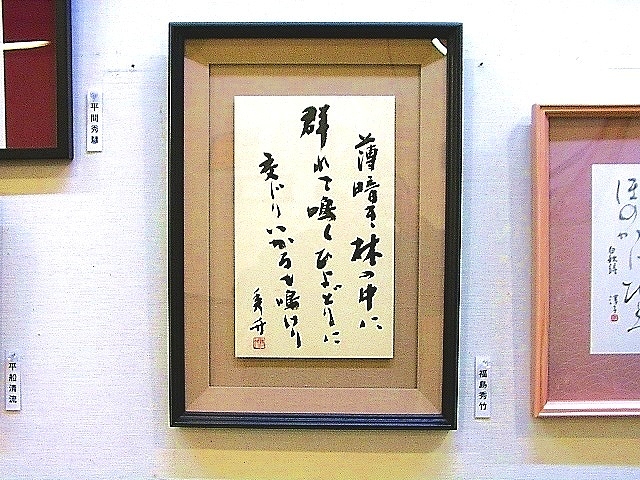 薄暗き林の中に
群れて鳴くひよどりに
交じりいかるも鳴けり
秀竹
福島秀竹
平間秀
平船清流
白秋詩